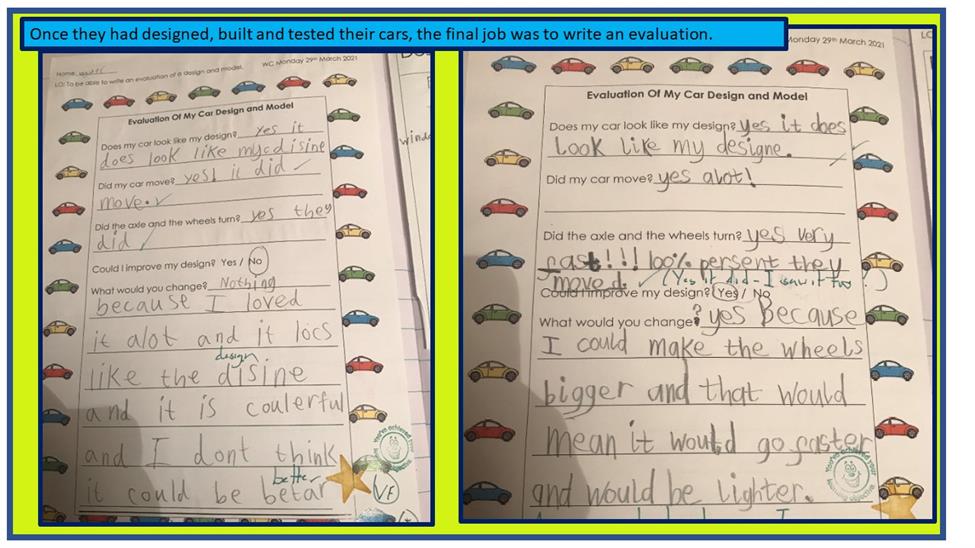 Once they had designed, built and tested their cars, the final job was to write an evaluation.
Name:
WC Monday 29th March 2021
LO: To be able to write an evaluation of a design and model.
Evaluation Of My Car Design and Model
Does my car look like my design? yes it
does look like my disine
Did my car move? yes! it did
move.
Did the axle and the wheels turn? yes they
did
Could I improve my design? Yes / No
What would you change? Nothing
because I loved
it alot and it locs
design
like the disine
and it is coulerful
and I dont think
better
it could be betar
VF
Monday 29th March 2021
Evaluation Of My Car Design and Model
Does my car look like my design? yes it does
look like my designe.
Did my car move? yes alot!
Did the axle and the wheels turn? yes very
fast!!! 100% persent they
moved. (Yes it did - I saw it too!)
Could I improve my design? Yes / No
What would you change? yes because
I could make the wheels
bigger and that would
mean it would go faster
and would be lighter.